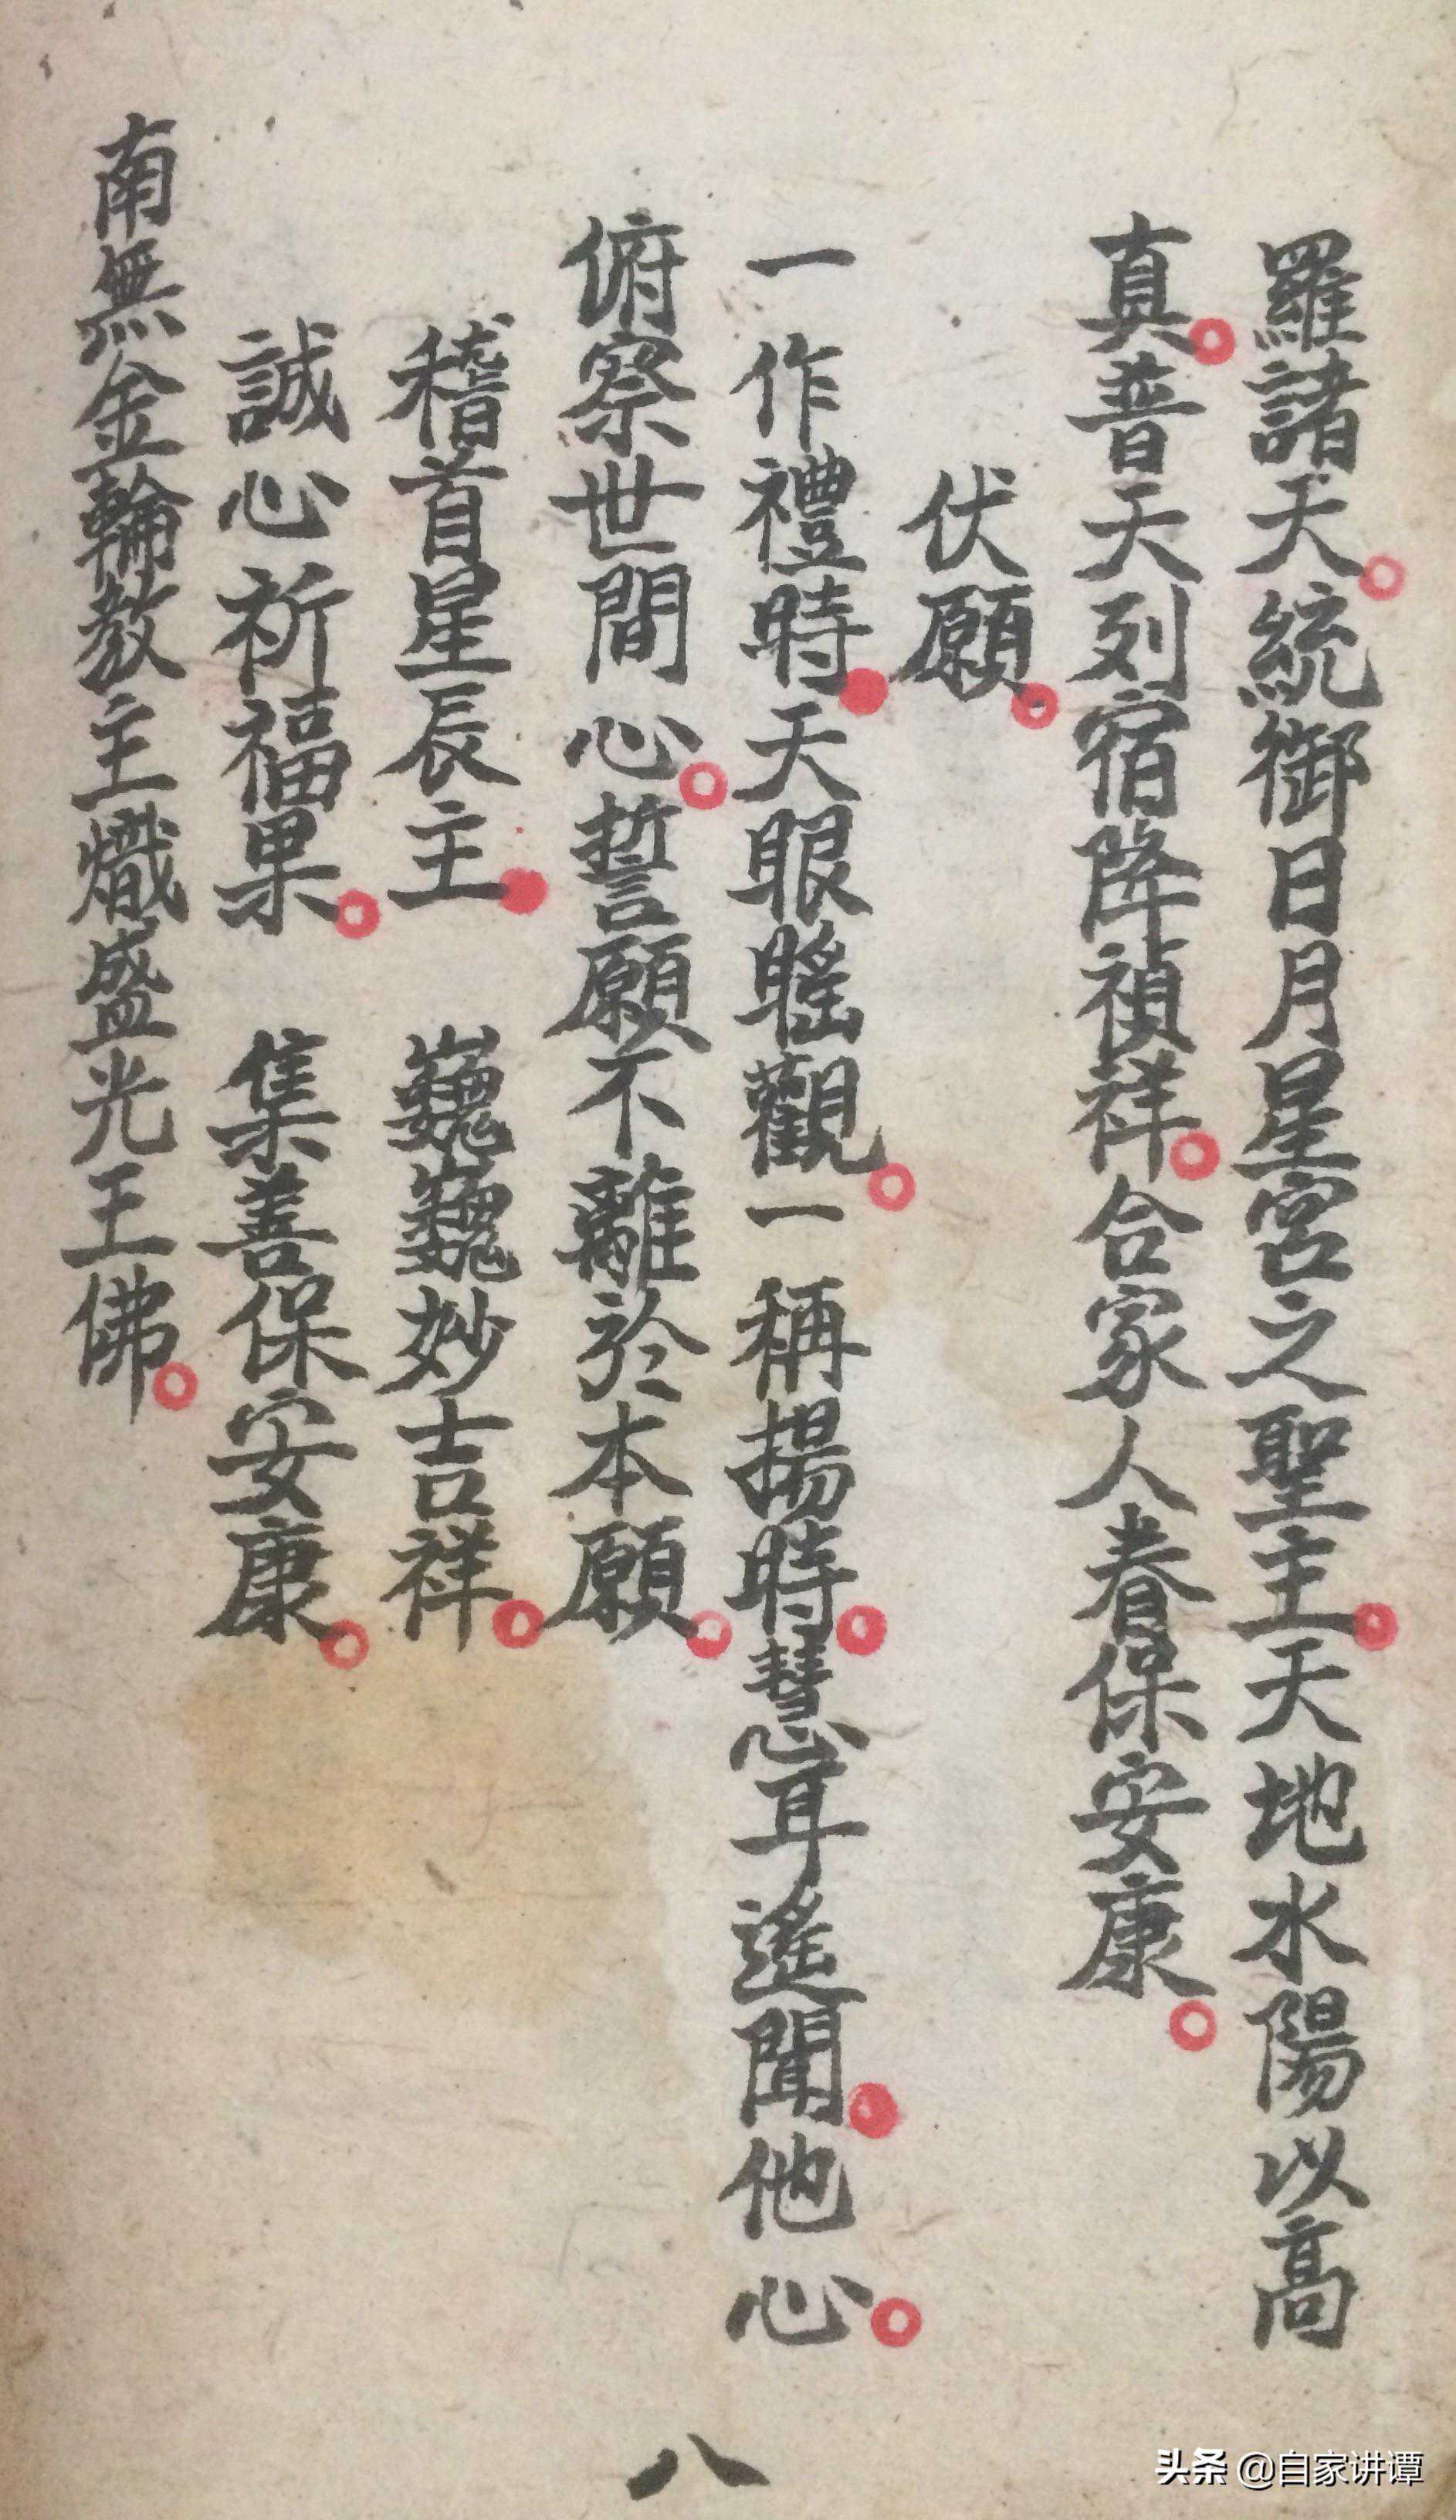 羅諸天。統御日月星宮之聖主。天地水陽以高
真。普天列宿降禎祥。合家人眷保安康。
伏願。
一作禮時天眼䁘觀。一稱揚時。慧耳遙聞他心。
俯察世間心。誓願不離於本願。
稽首星辰主 巍巍妙吉祥。
誠心祈福果。 集善保安康。
南無金輪教主熾盛光王佛。
八
头条 @自家讲谭